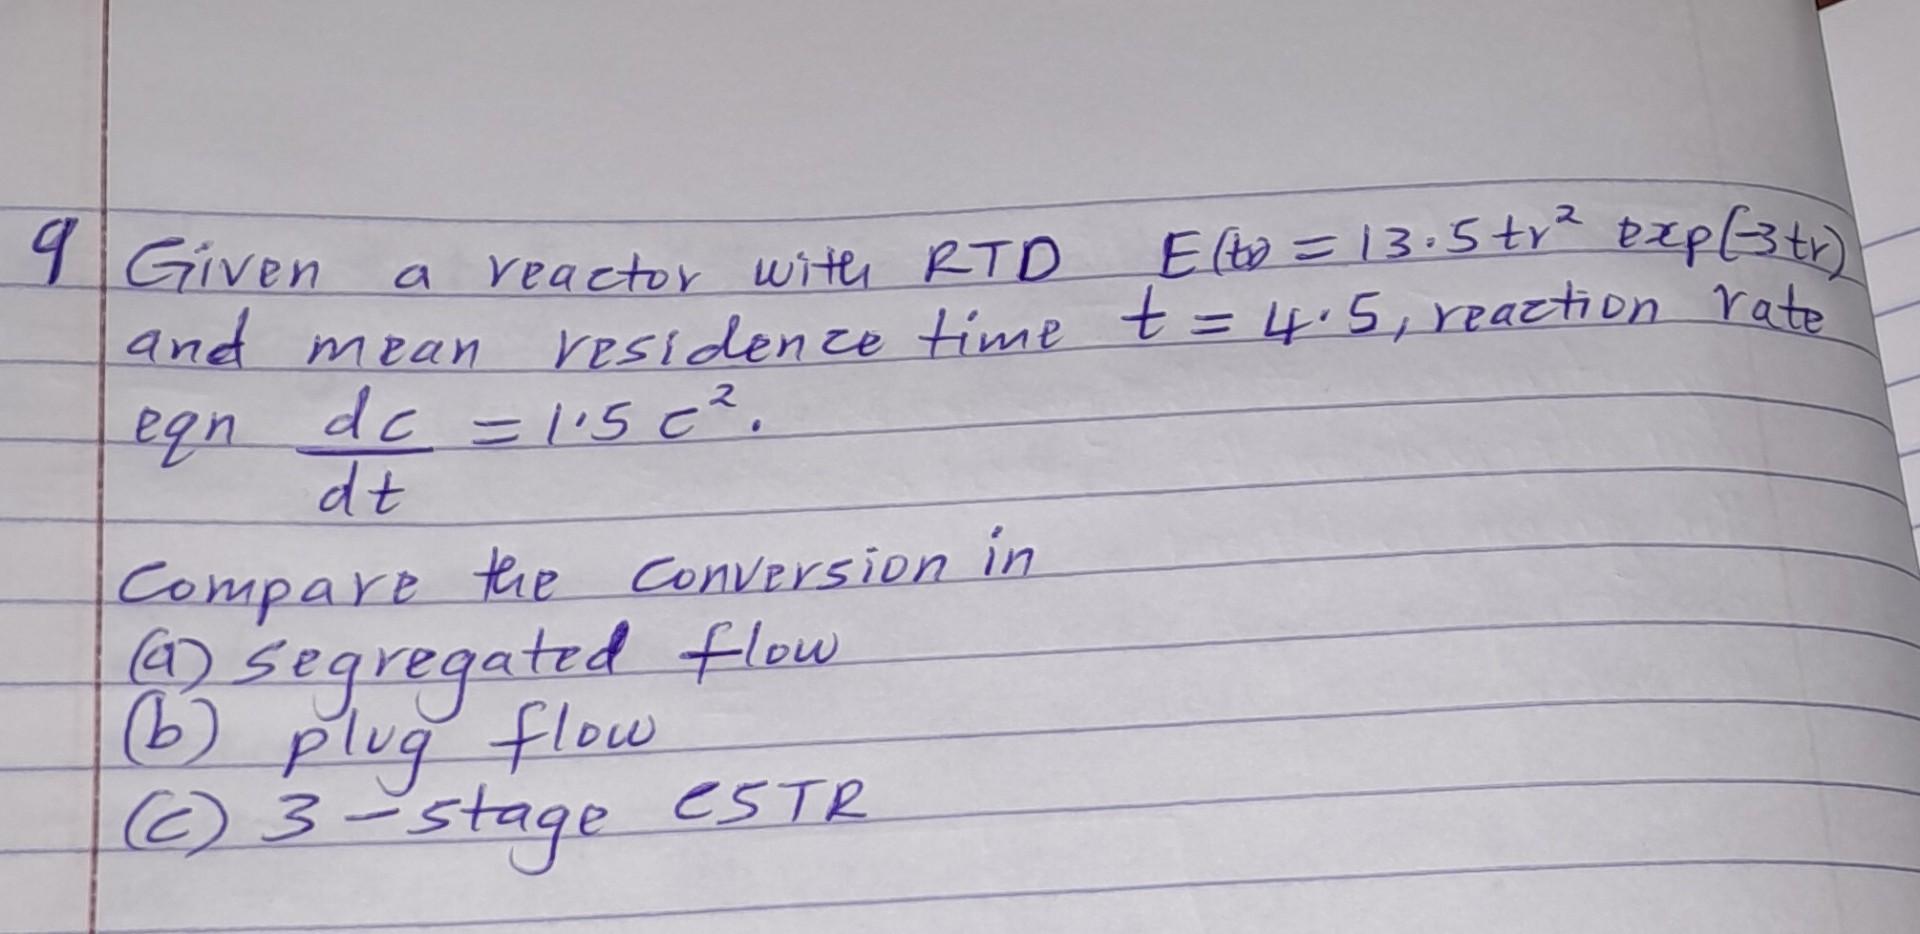 9 Given a reactor with RTD E(tr) = 13.5 tr² exp(-3tr)
and mean residence time t = 4.5, reaction rate
eqn dc/dt = 1.5 c².
Compare the conversion in
(a) segregated flow
(b) plug flow
(c) 3-stage CSTR